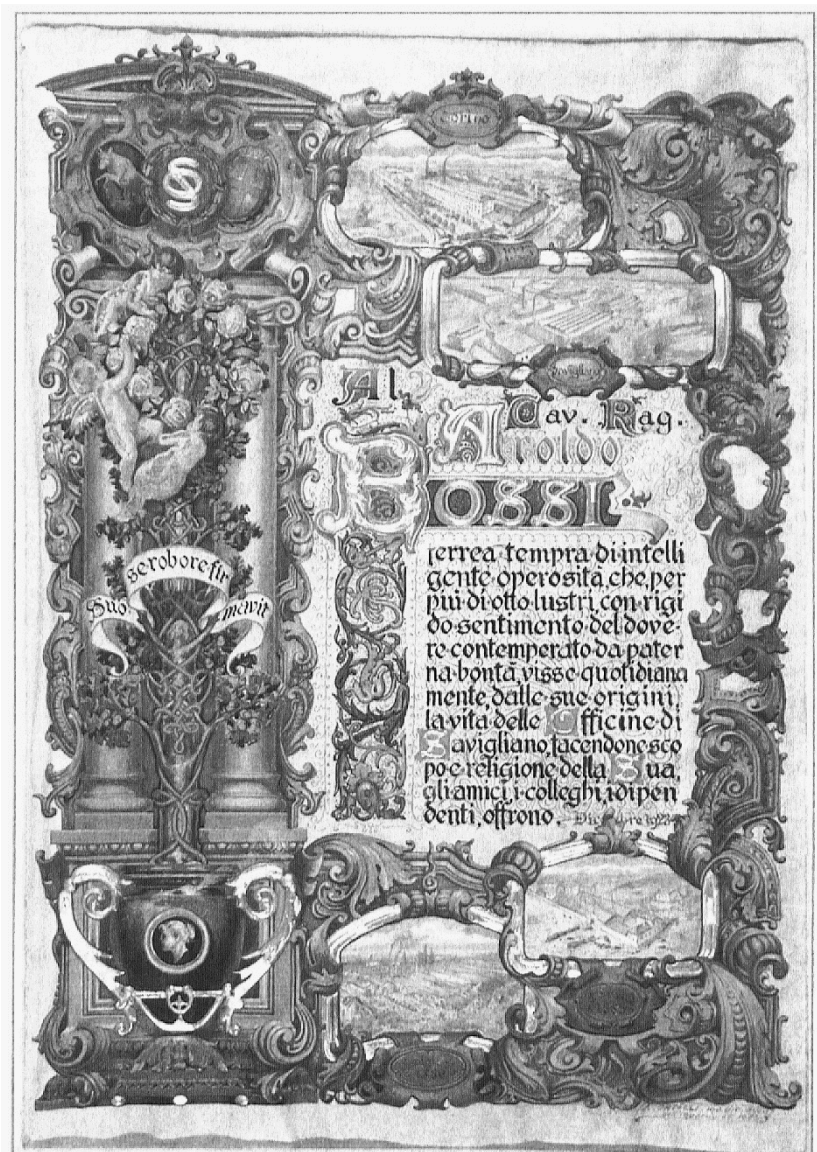 TORINO
Savigliano
Al
Cav. Rag.
Aroldo
BOSSI
ferrea tempra di intelli
gente operosità, che, per
più di otto lustri, con rigi
do sentimento del dove-
re contemperato da pater
na bontà, visse quotidiana
mente, dalle sue origini,
la vita delle Officine di
Savigliano, facendone sco
po e religione della Sua,
gli amici, i colleghi, i dipen
denti, offrono. Dicembre 1923
Suo se robore fir mavit